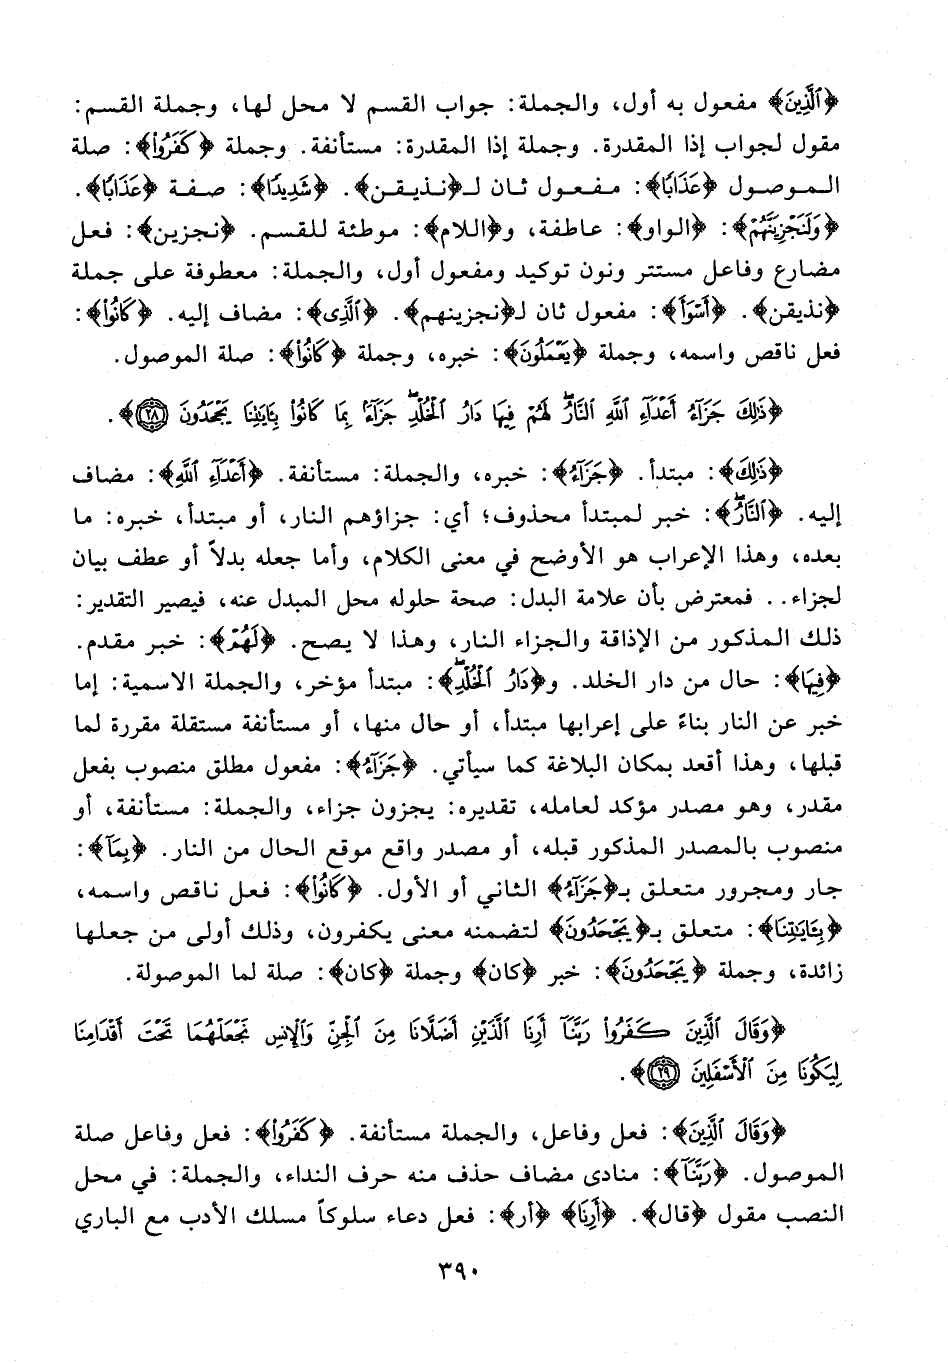 ﴿ٱلَّذِينَ﴾ مفعول به أول، والجملة: جواب القسم لا محل لها، وجملة القسم:
مقول لجواب إذا المقدرة. وجملة إذا المقدرة: مستأنفة. وجملة ﴿كَفَرُوا۟﴾: صلة
الموصول ﴿عَذَابًا﴾: مفعول ثان لـ﴿نذيقن﴾. ﴿شَدِيدًا﴾: صفة ﴿عَذَابًا﴾.
﴿وَلَنَجْزِيَنَّهُمْ﴾: ﴿الواو﴾: عاطفة، و﴿اللام﴾: موطئة للقسم. ﴿نجزين﴾: فعل
مضارع وفاعل مستتر ونون توكيد ومفعول أول، والجملة: معطوفة على جملة
﴿نذيقن﴾. ﴿أَسْوَأَ﴾: مفعول ثان لـ﴿نجزينهم﴾. ﴿ٱلَّذِى﴾: مضاف إليه. ﴿كَانُوا۟﴾:
فعل ناقص واسمه، وجملة ﴿يَعْمَلُونَ﴾: خبره، وجملة ﴿كَانُوا۟﴾: صلة الموصول.
﴿ذَٰلِكَ جَزَآءُ أَعْدَآءِ ٱللَّهِ ٱلنَّارُ ۖ لَهُمْ فِيهَا دَارُ ٱلْخُلْدِ ۖ جَزَآءًۢ بِمَا كَانُوا۟ بِـَٔايَـٰتِنَا يَجْحَدُونَ ۝٢٨﴾.
﴿ذَٰلِكَ﴾: مبتدأ. ﴿جَزَآءُ﴾: خبره، والجملة: مستأنفة. ﴿أَعْدَآءِ ٱللَّهِ﴾: مضاف
إليه. ﴿ٱلنَّارُ ۖ﴾: خبر لمبتدأ محذوف؛ أي: جزاؤهم النار، أو مبتدأ، خبره: ما
بعده، وهذا الإعراب هو الأوضح في معنى الكلام، وأما جعله بدلاً أو عطف بيان
لجزاء.. فمعترض بأن علامة البدل: صحة حلوله محل المبدل عنه، فيصير التقدير:
ذلك المذكور من الإذاقة والجزاء النار، وهذا لا يصح. ﴿لَهُمْ﴾: خبر مقدم.
﴿فِيهَا﴾: حال من دار الخلد. و﴿دَارُ ٱلْخُلْدِ ۖ﴾: مبتدأ مؤخر، والجملة الاسمية: إما
خبر عن النار بناءً على إعرابها مبتدأ، أو حال منها، أو مستأنفة مستقلة مقررة لما
قبلها، وهذا أقعد بمكان البلاغة كما سيأتي. ﴿جَزَآءً﴾: مفعول مطلق منصوب بفعل
مقدر، وهو مصدر مؤكد لعامله، تقديره: يجزون جزاء، والجملة: مستأنفة، أو
منصوب بالمصدر المذكور قبله، أو مصدر واقع موقع الحال من النار. ﴿بِمَآ﴾:
جار ومجرور متعلق بـ﴿جَزَآءُ﴾ الثاني أو الأول. ﴿كَانُوا۟﴾: فعل ناقص واسمه،
﴿بِـَٔايَـٰتِنَا﴾: متعلق بـ﴿يَجْحَدُونَ﴾ لتضمنه معنى يكفرون، وذلك أولى من جعلها
زائدة، وجملة ﴿يَجْحَدُونَ﴾: خبر ﴿كان﴾ وجملة ﴿كان﴾: صلة لما الموصولة.
﴿وَقَالَ ٱلَّذِينَ كَفَرُوا۟ رَبَّنَآ أَرِنَا ٱلَّذَيْنِ أَضَلَّانَا مِنَ ٱلْجِنِّ وَٱلْإِنسِ نَجْعَلْهُمَا تَحْتَ أَقْدَامِنَا
لِيَكُونَا مِنَ ٱلْأَسْفَلِينَ ۝٢٩﴾.
﴿وَقَالَ ٱلَّذِينَ﴾: فعل وفاعل، والجملة مستأنفة. ﴿كَفَرُوا۟﴾: فعل وفاعل صلة
الموصول. ﴿رَبَّنَآ﴾: منادى مضاف حذف منه حرف النداء، والجملة: في محل
النصب مقول ﴿قال﴾. ﴿أَرِنَا﴾ ﴿أر﴾: فعل دعاء سلوكاً مسلك الأدب مع الباري
٣٩٠